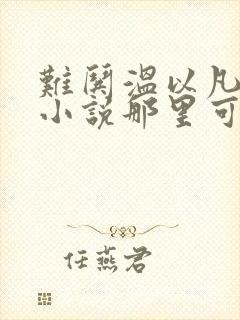 難閧溫以凡
小說那里可
任燕君